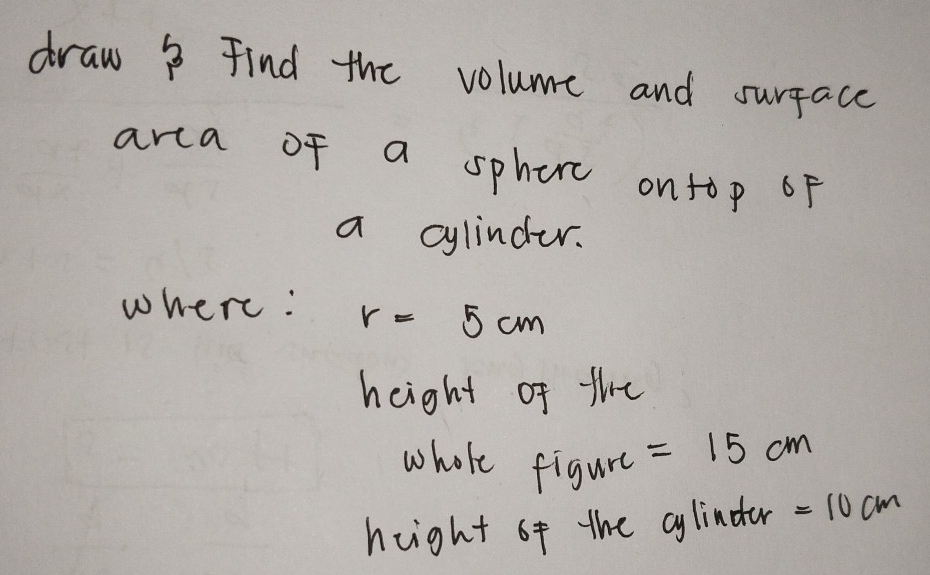 draw & Find the volume and surface
area of a sphere ontop of
a cylinder.
where: r = 5 cm
height of the
whole figure = 15 cm
height of the cylinder = 10 cm